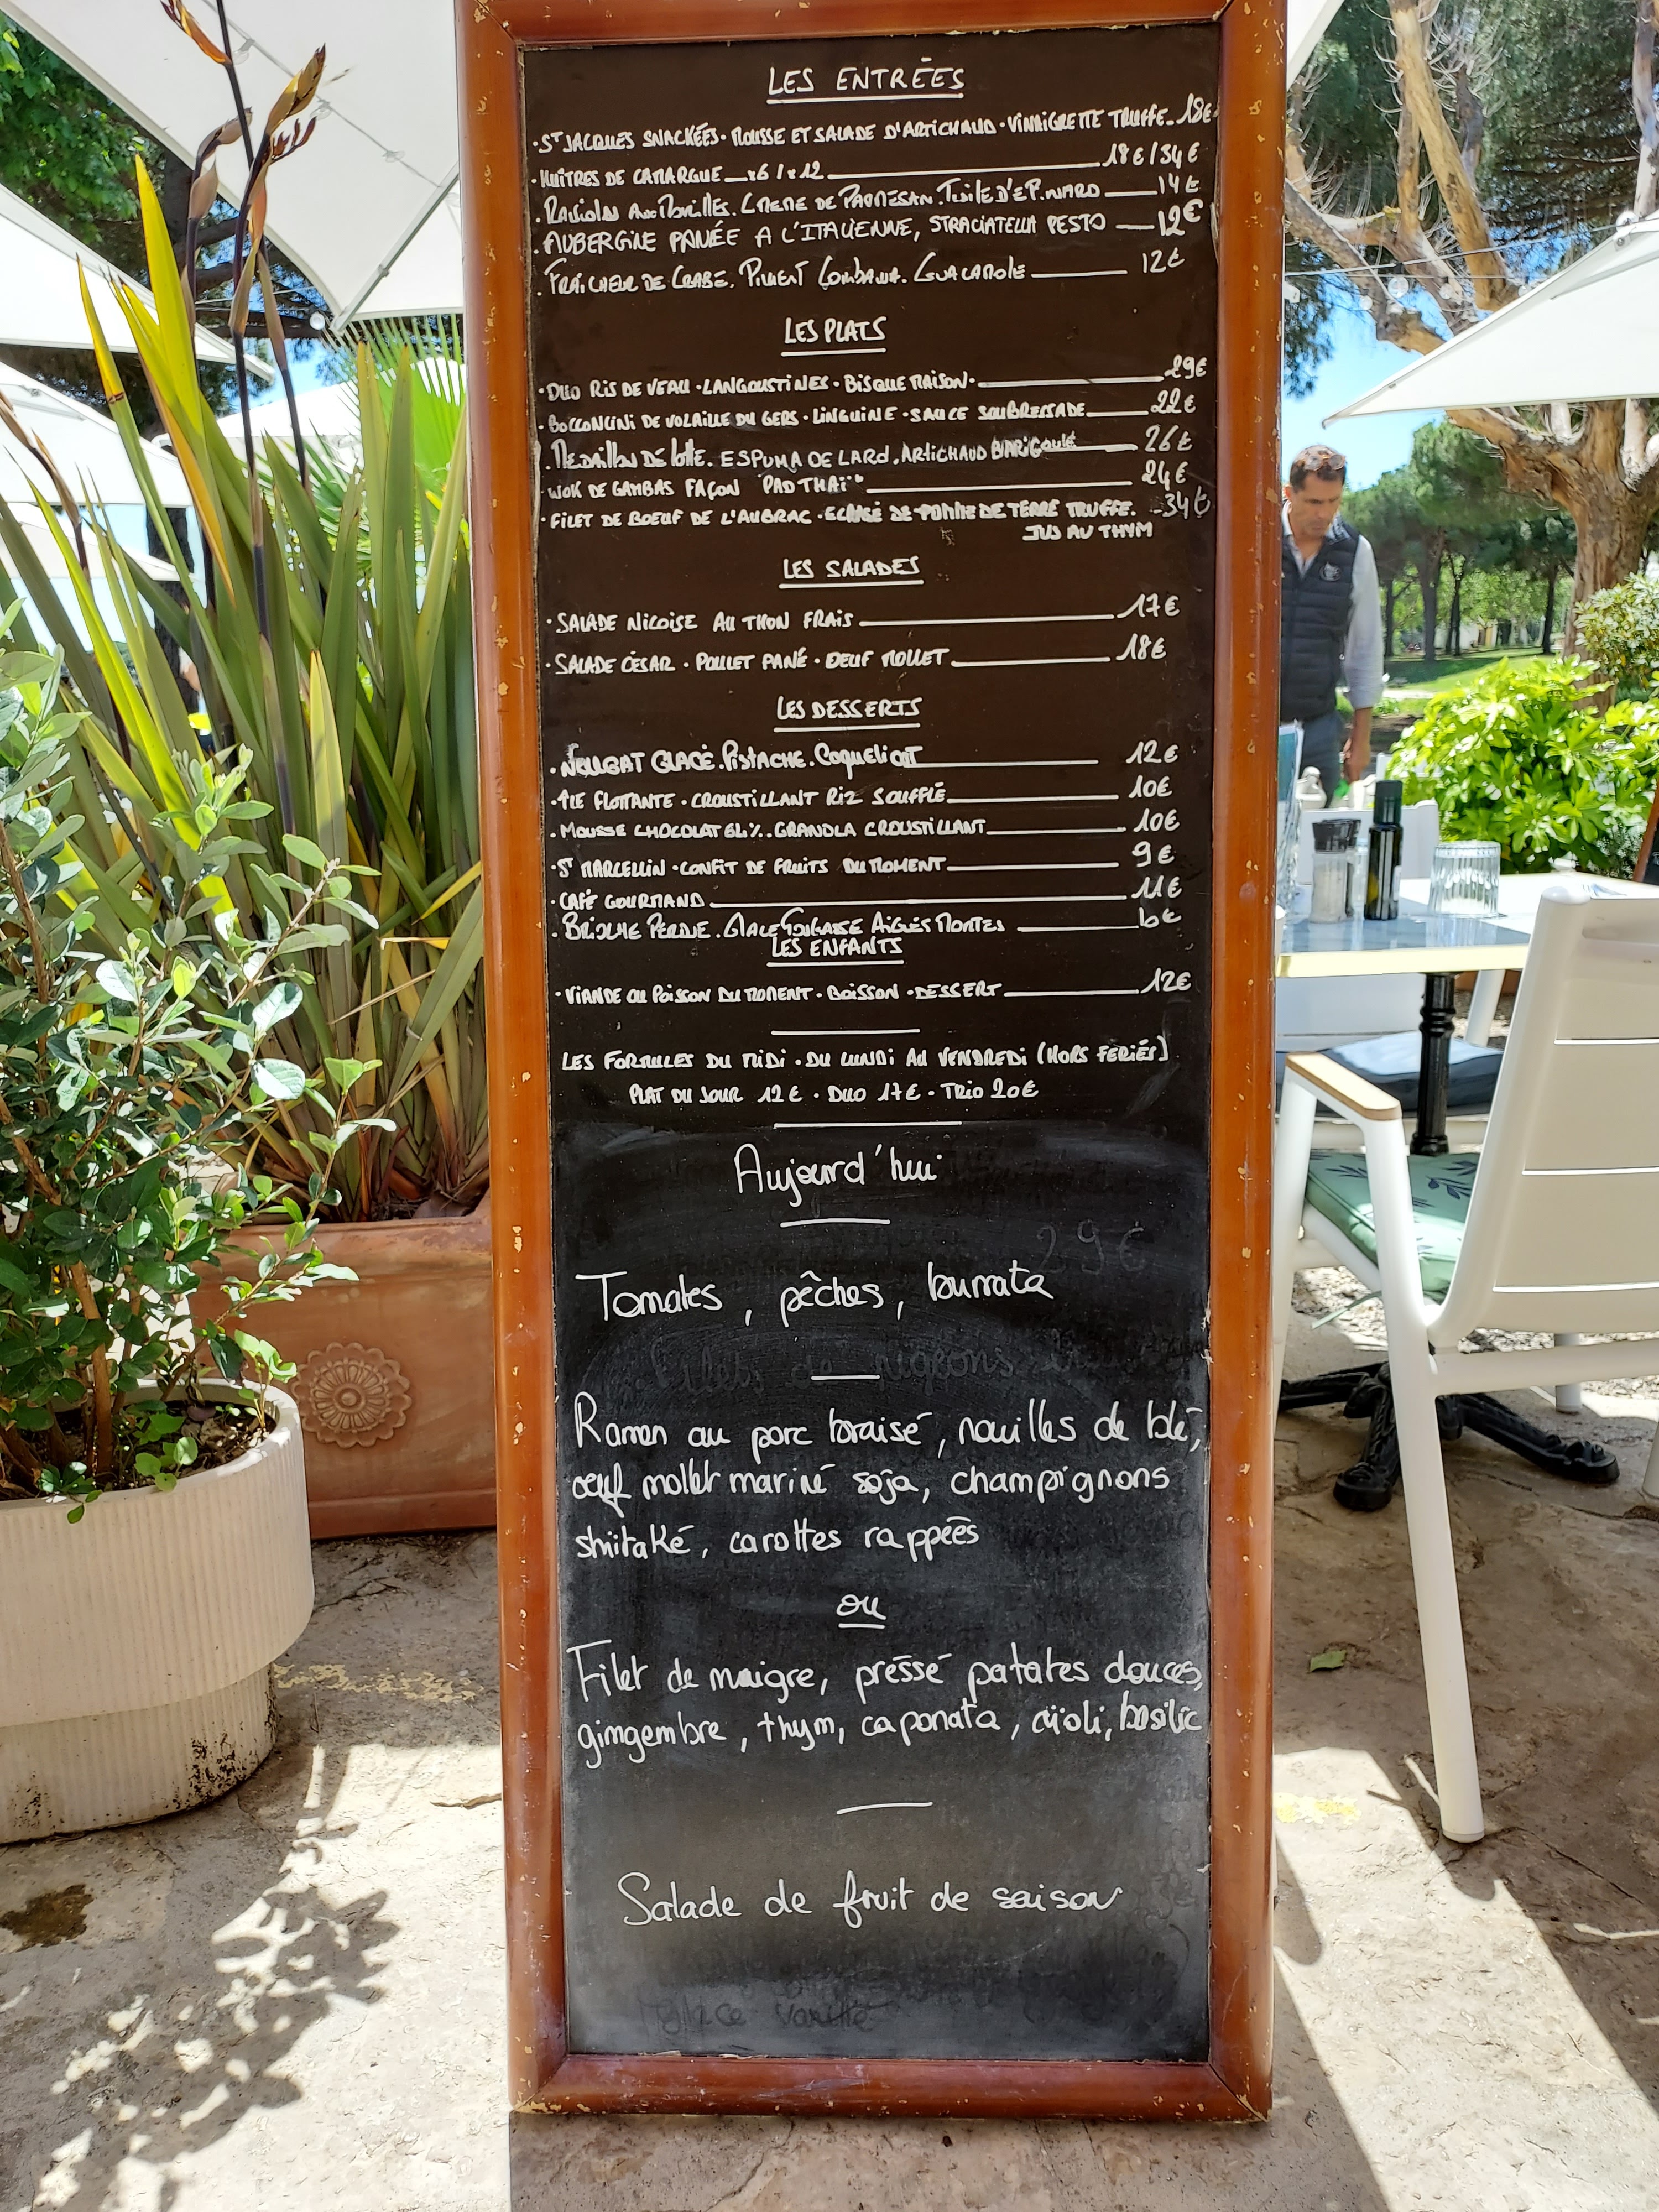 LES ENTRÉES
· ST JACQUES SNACKÉES · MOUSSE ET SALADE D'ARTICHAUD · VINAIGRETTE TRUFFE. 18€
· HUÎTRES DE CAMARGUE x6 / x12 18€/34€
· Ravioles aux Morilles. Crème de Parmesan. Tuile d'Epinard 14€
· AUBERGINE PANÉE A L'ITALIENNE, STRACIATELLA PESTO 12€
· Fraîcheur de Crabe. Piment Combawa. Guacamole 12€
LES PLATS
· DUO RIS DE VEAU · LANGOUSTINES · BISQUE MAISON · 29€
· BOCCONCINI DE VOLAILLE DU GERS · LINGUINE · SAUCE SOUBRESSADE 22€
· Médaillon de lotte. ESPUMA DE LARD. ARTICHAUD BARIGOULE 26€
· WOK DE GAMBAS FAÇON "PAD THAÏ" 24€
· FILET DE BOEUF DE L'AUBRAC · ECRASÉ DE POMME DE TERRE TRUFFE. 34€
JUS AU THYM
LES SALADES
· SALADE NICOISE AU THON FRAIS 17€
· SALADE CÉSAR · POULET PANÉ · OEUF MOLLET 18€
LES DESSERTS
· NOUGAT GLACÉ. Pistache. Coquelicot 12€
· ÎLE FLOTTANTE · CROUSTILLANT RIZ SOUFFLÉ 10€
· MOUSSE CHOCOLAT 64%. GRANOLA CROUSTILLANT 10€
· ST MARCELLIN · CONFIT DE FRUITS DU MOMENT 9€
· CAFÉ GOURMAND 11€
· Brioche Perdue. Glace Fougasse Aigues Mortes 10€
LES ENFANTS
· VIANDE OU POISSON DU MOMENT · BOISSON · DESSERT 12€
LES FORMULES DU MIDI · DU LUNDI AU VENDREDI (HORS FERIÉS)
PLAT DU JOUR 12€ · DUO 17€ · TRIO 20€
Aujourd'hui
29€
Tomates, pêches, burrata
Filets de pigeons
Ramen au porc braisé, nouilles de blé,
œuf mollet mariné soja, champignons
shiitaké, carottes rappées
ou
Filet de maigre, pressé patates douces,
gingembre, thym, caponata, aïoli, basilic
Salade de fruit de saison
glace vanille